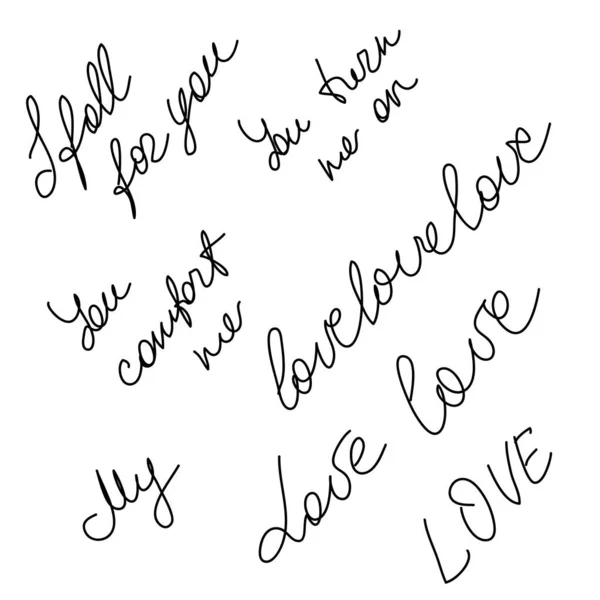 I fall
for you
You turn
me on
lovelovelove
You
comfort
me
love
My
Love
LOVE